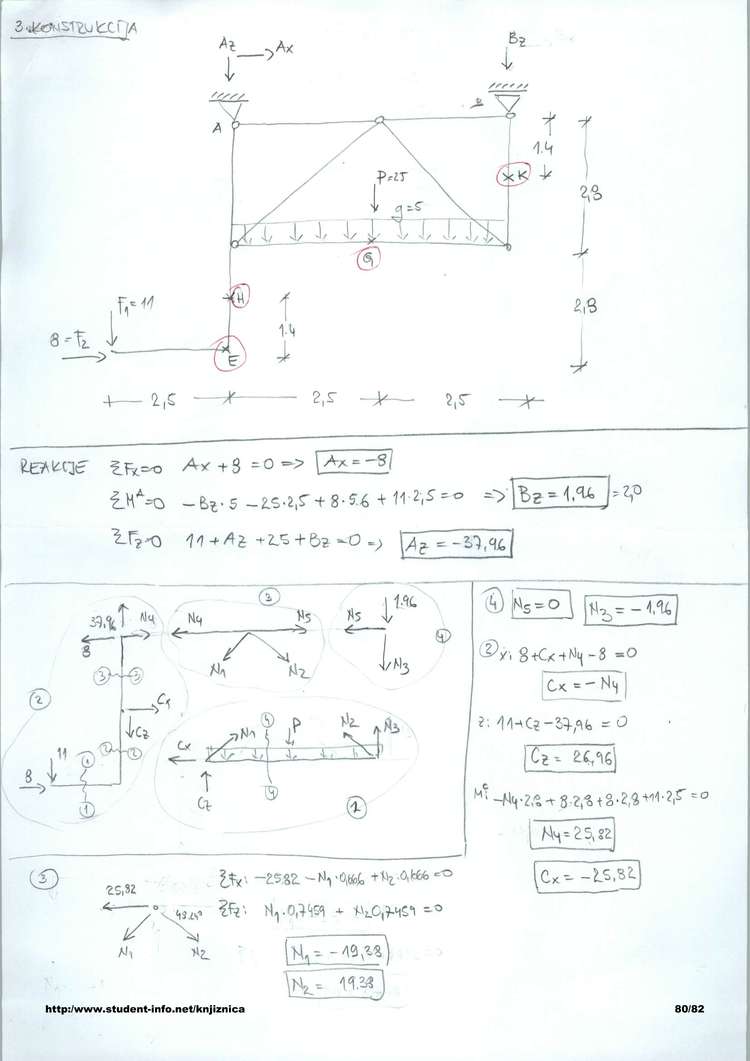 3. KONSTRUKCIJA
Az Ax
Bz
A
B
1.4
K
P=25
2,8
g=5
G
H
F1=11
1.4
2,8
8=F2
E
2,5 2,5 2,5
REAKCIJE ΣFx=0 Ax+8=0 => Ax=-8
ΣM^A=0 -Bz·5 -25·2,5 +8·5.6 +11·2,5=0 => Bz=1,96 =2,0
ΣFz=0 11+Az+25+Bz=0 => Az=-37,96
37,96 N4 8
3 3
2
C1
Cz
2 2
11
1
8
1
3
N4 N5
N1 N2
N5 1.96
4
N3
Cx N1 4 P N2 N3
Cz 4
1
4 N5=0 N3=-1,96
2 x: 8+Cx+N4-8=0
Cx=-N4
z: 11+Cz-37,96=0
Cz=26,96
M^C: -N4·2,8+8·2,8+8·2,8+11·2,5=0
N4=25,82
Cx=-25,82
3
25,82
48.24°
N1 N2
ΣFx: -25.82 -N1·0,666 +N2·0,666=0
ΣFz: N1·0,7459 + N2 0,7459=0
N1=-19,38
N2= 19.38
http:/www.student-info.net/knjiznica 80/82